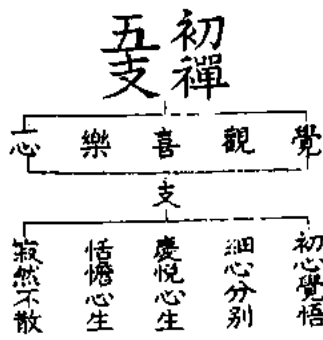 初禪
五支
覺 觀 喜 樂 一心
支
初心覺悟
細心分別
慶悅心生
恬憺心生
寂然不散